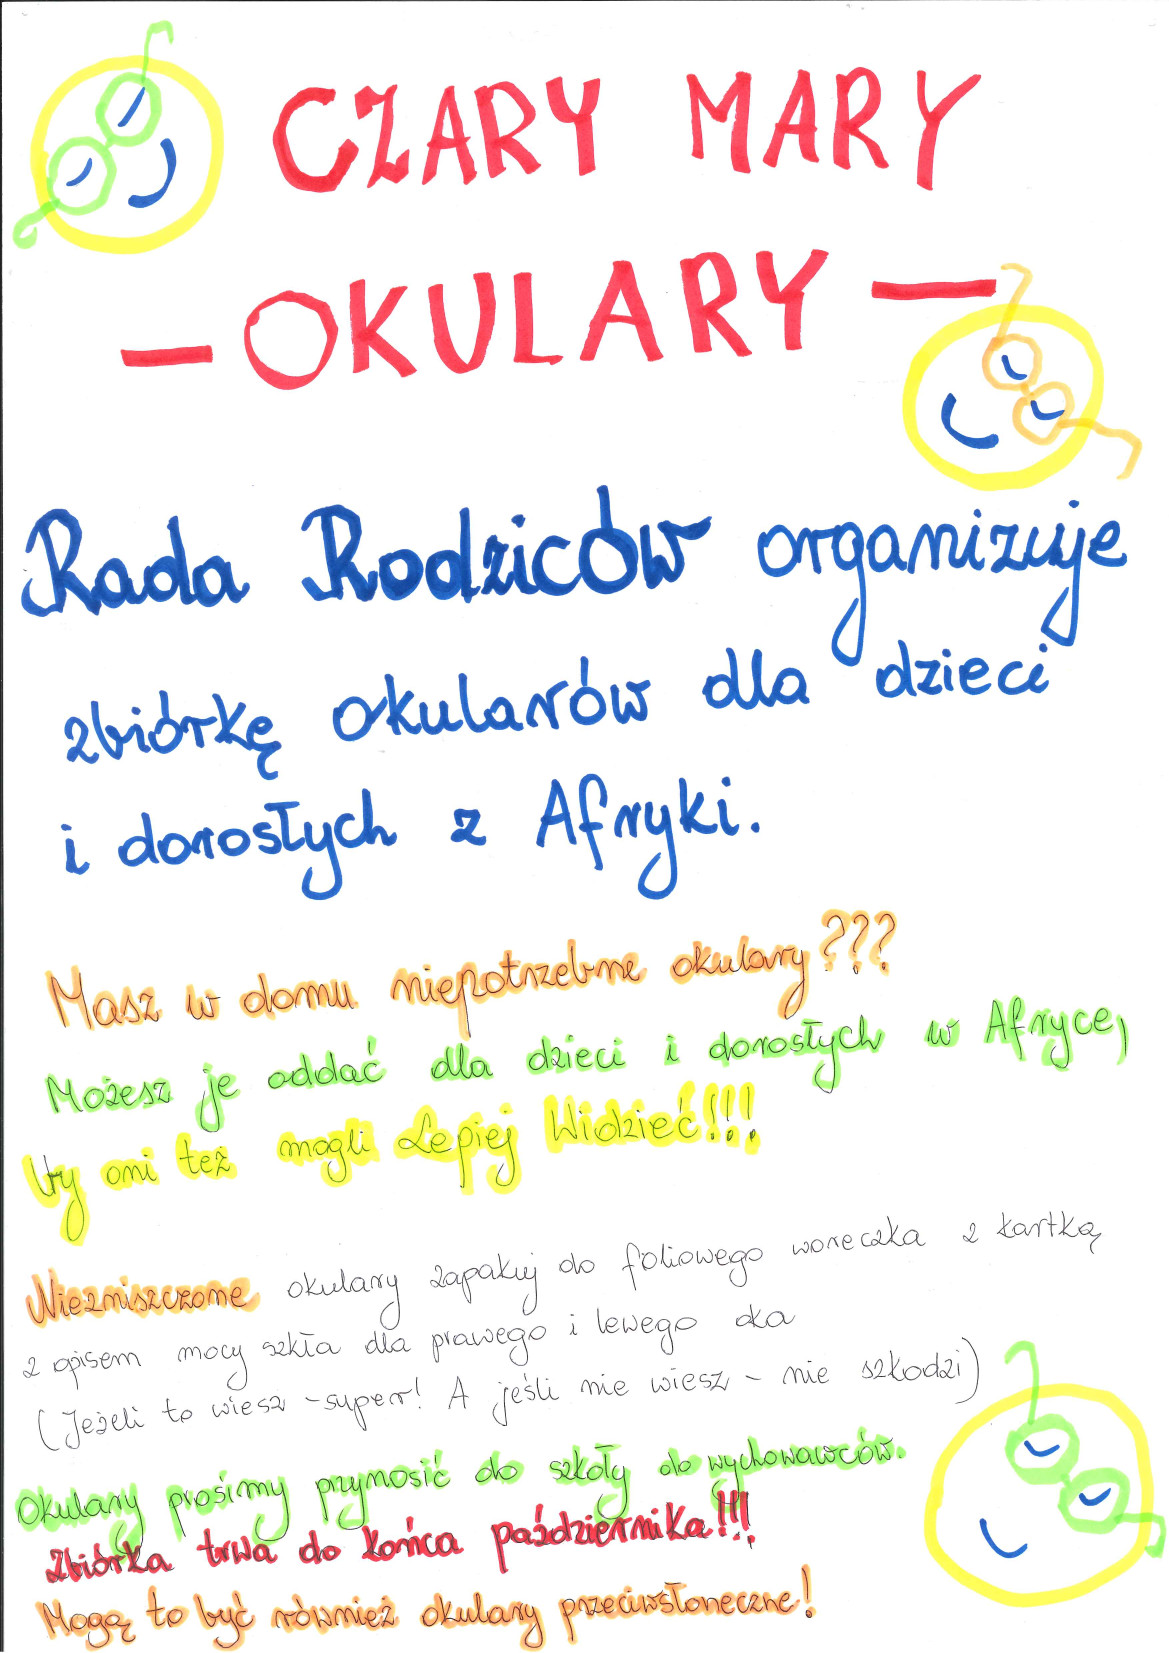 CZARY MARY
- OKULARY -
Rada Rodziców organizuje
zbiórkę okularów dla dzieci
i dorosłych z Afryki.
Masz w domu niepotrzebne okulary???
Możesz je oddać dla dzieci i dorosłych w Afryce,
by oni też mogli Lepiej Widzieć!!!
Niezniszczone okulary zapakuj do foliowego woreczka z kartką
z opisem mocy szkła dla prawego i lewego oka
(Jeżeli to wiesz - super! A jeśli nie wiesz - nie szkodzi)
Okulary prosimy przynosić do szkoły do wychowawców.
Zbiórka trwa do końca października!!!
Mogą to być również okulary przeciwsłoneczne!